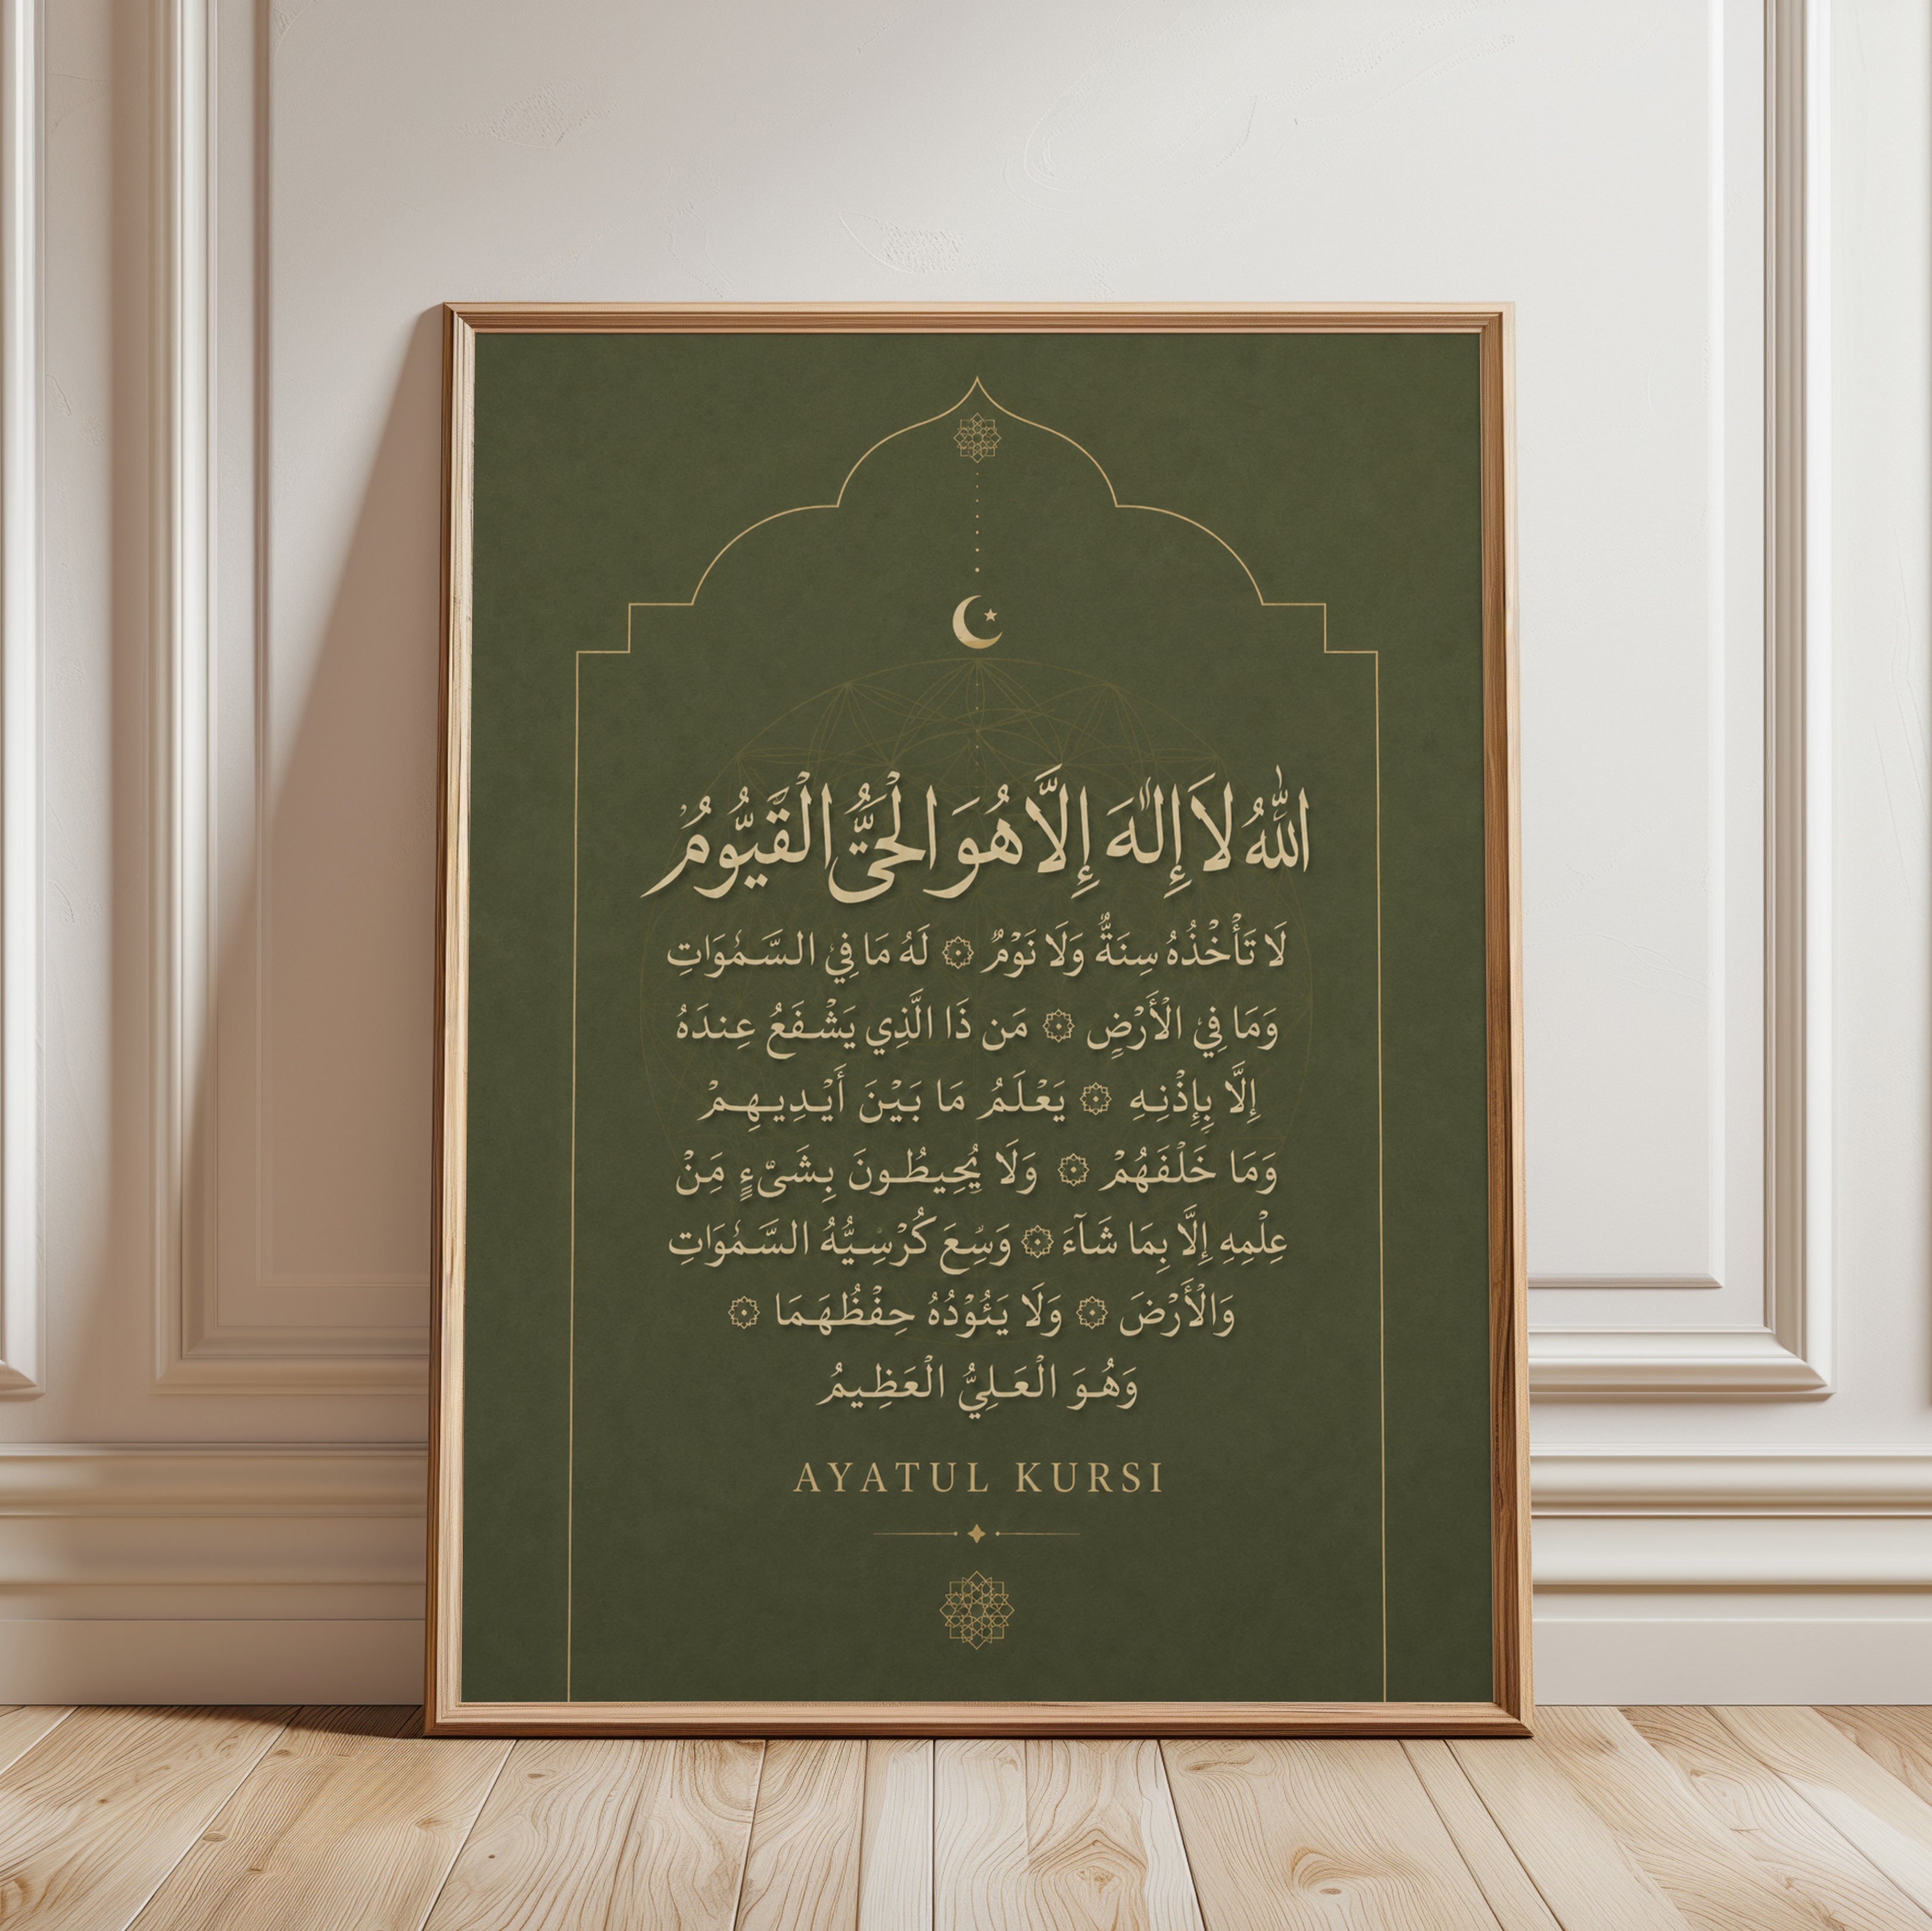 اللّٰهُ لَا إِلٰهَ إِلَّا هُوَ الْحَيُّ الْقَيُّومُ
لَا تَأْخُذُهُ سِنَةٌ وَلَا نَوْمٌ ۞ لَهُ مَا فِي السَّمٰوَاتِ
وَمَا فِي الْأَرْضِ ۞ مَن ذَا الَّذِي يَشْفَعُ عِندَهُ
إِلَّا بِإِذْنِهِ ۞ يَعْلَمُ مَا بَيْنَ أَيْدِيهِمْ
وَمَا خَلْفَهُمْ ۞ وَلَا يُحِيطُونَ بِشَىْءٍ مَِنْ
عِلْمِهِ إِلَّا بِمَا شَآءَ ۞ وَسِعَ كُرْسِيُّهُ السَّمٰوَاتِ
وَالْأَرْضَ ۞ وَلَا يَئُوْدُهُ حِفْظُهَمَا ۞
وَهُوَ الْعَلِيُّ الْعَظِيمُ
AYATUL KURSI